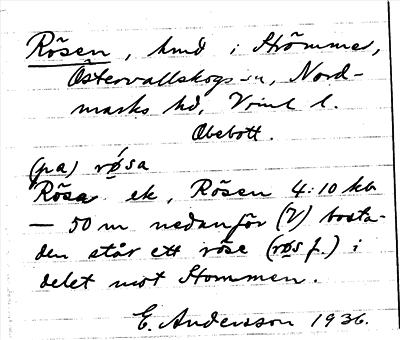 Rösen, hmd i Strömmer,
Östervallskogs sn, Nord-
marks hd, Vrml l.
Obebott.
(pa) røsa
Rösa ek, Rösen 4:10 kb
— 50 m nedanför (V) bosta-
den står ett röse (røs f.) i
delet mot Stommen.
E. Andersson 1936.